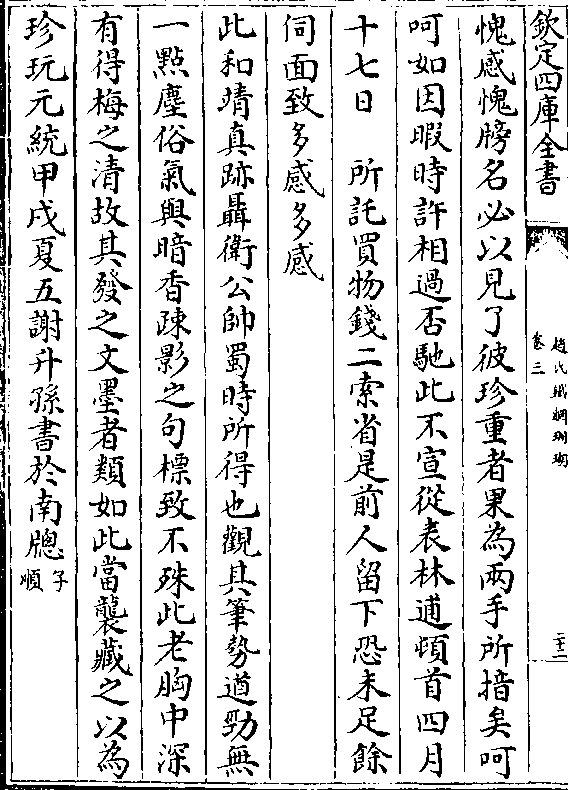 欽定四庫全書
趙氏鐵網珊瑚
卷三
二十二
愧感愧牓名必以見了彼珍重者果為兩手所揞矣呵
呵如因暇時許相過否馳此不宣從表林逋頓首四月
十七日　所託買物錢二索省是前人留下恐未足餘
伺面致多感多感
此和靖真跡聶衛公帥蜀時所得也觀其筆勢遒勁無
一點塵俗氣與暗香疎影之句標致不殊此老胸中深
有得梅之清故其發之文墨者類如此當襲藏之以為
珍玩元統甲戌夏五謝升孫書於南牕子順